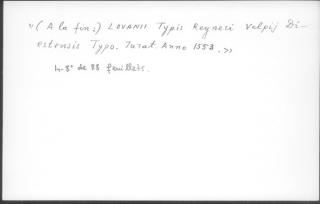 «(A la fin:) LOVANII Typis Reyneri Velpij Di-
estensis Typo. Jurat. Anno 1553.»
in-8° de 88 feuillets.